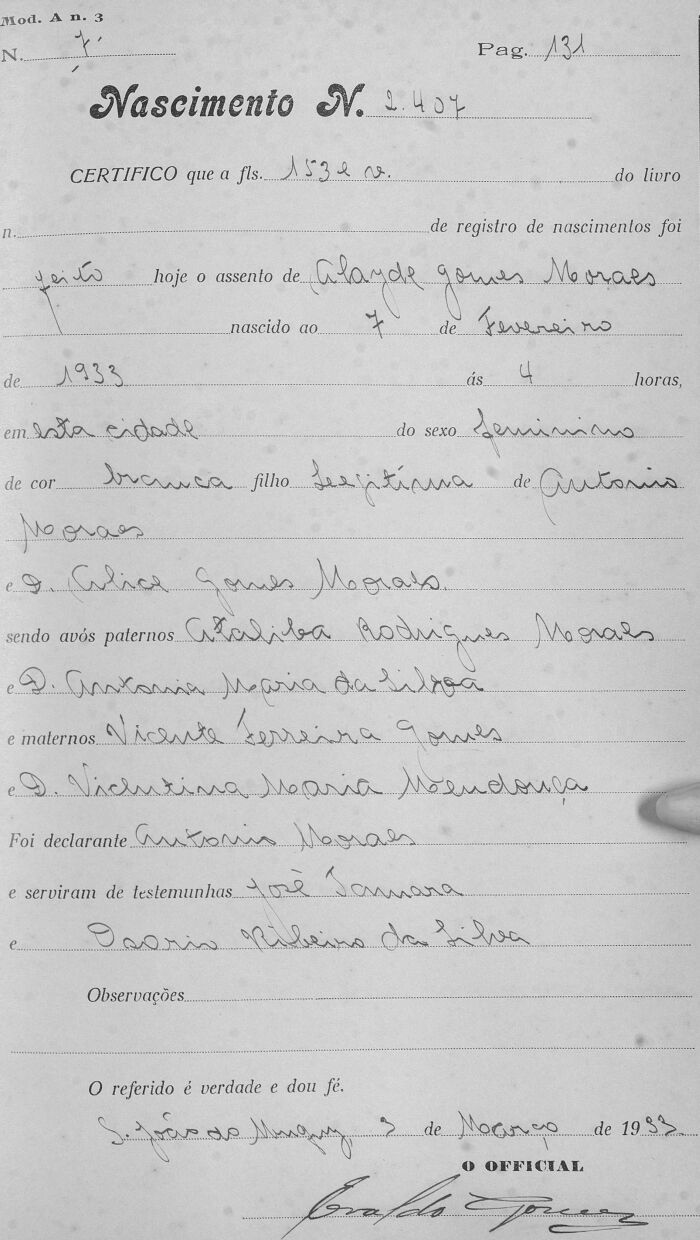 Mod. A n. 3
N. 7. Pag. 131
Nascimento N. 2.407
CERTIFICO que a fls. 153 e v. do livro
n. de registro de nascimentos foi
feito hoje o assento de Alayde Gomes Moraes
nascido ao 7 de Fevereiro
de 1933 ás 4 horas,
em esta cidade do sexo feminino
de cor branca filho Legitima de Antonio
Moraes
e D. Alice Gomes Moraes.
sendo avós paternos Ataliba Rodrigues Moraes
e D. Antonia Maria da Silva
e maternos Vicente Ferreira Gomes
e D. Vicentina Maria Mendonça
Foi declarante Antonio Moraes
e serviram de testemunhas José
e Osorio Ribeiro da Silva
Observações
O referido é verdade e dou fé.
S. João do Muquy, 3 de Março de 1933.
O OFFICIAL
Gomes